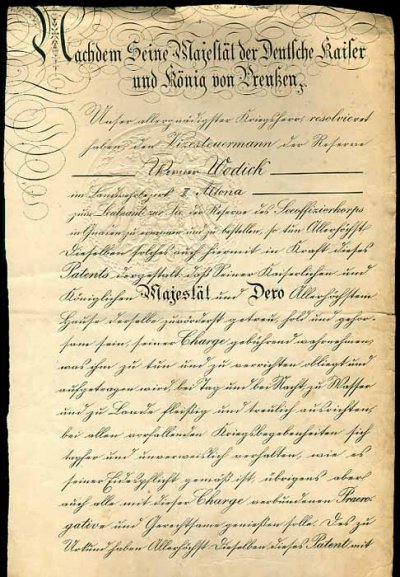 Nachdem Seine Majestät der Deutsche Kaiser
und König von Preußen,
Unser allergnädigster Kriegsherr, resolvieret
haben, den Vizesteuermann der Reserve
Werner Wodick
im Landwehrbezirk II Altona
zum Leutnant zur See der Reserve des Seeoffizierkorps
in Gnaden zu ernennen und zu bestellen, so tun Allerhöchst
Dieselben solches auch hiermit in Kraft dieses
Patents, dergestalt, daß Seiner Kaiserlichen und
Königlichen Majestät und Dero Allerhöchstem
Hause derselbe zuvörderst getreu, hold und gehor-
sam sein, seiner Charge gebührend wahrnehmen,
was ihm zu tun und zu verrichten obliegt und
aufgetragen wird, bei Tag und bei Nacht, zu Wasser
und zu Lande fleißig und treulich ausrichten,
bei allen vorfallenden Kriegsbegebenheiten sich
tapfer und unverweislich verhalten, wie es
seiner Eidespflicht gemäß ist, übrigens aber
auch alle mit dieser Charge verbundenen Praero-
gative und Gerechtsame genießen solle. Des zu
Urkund haben Allerhöchst Dieselben dieses Patent mit